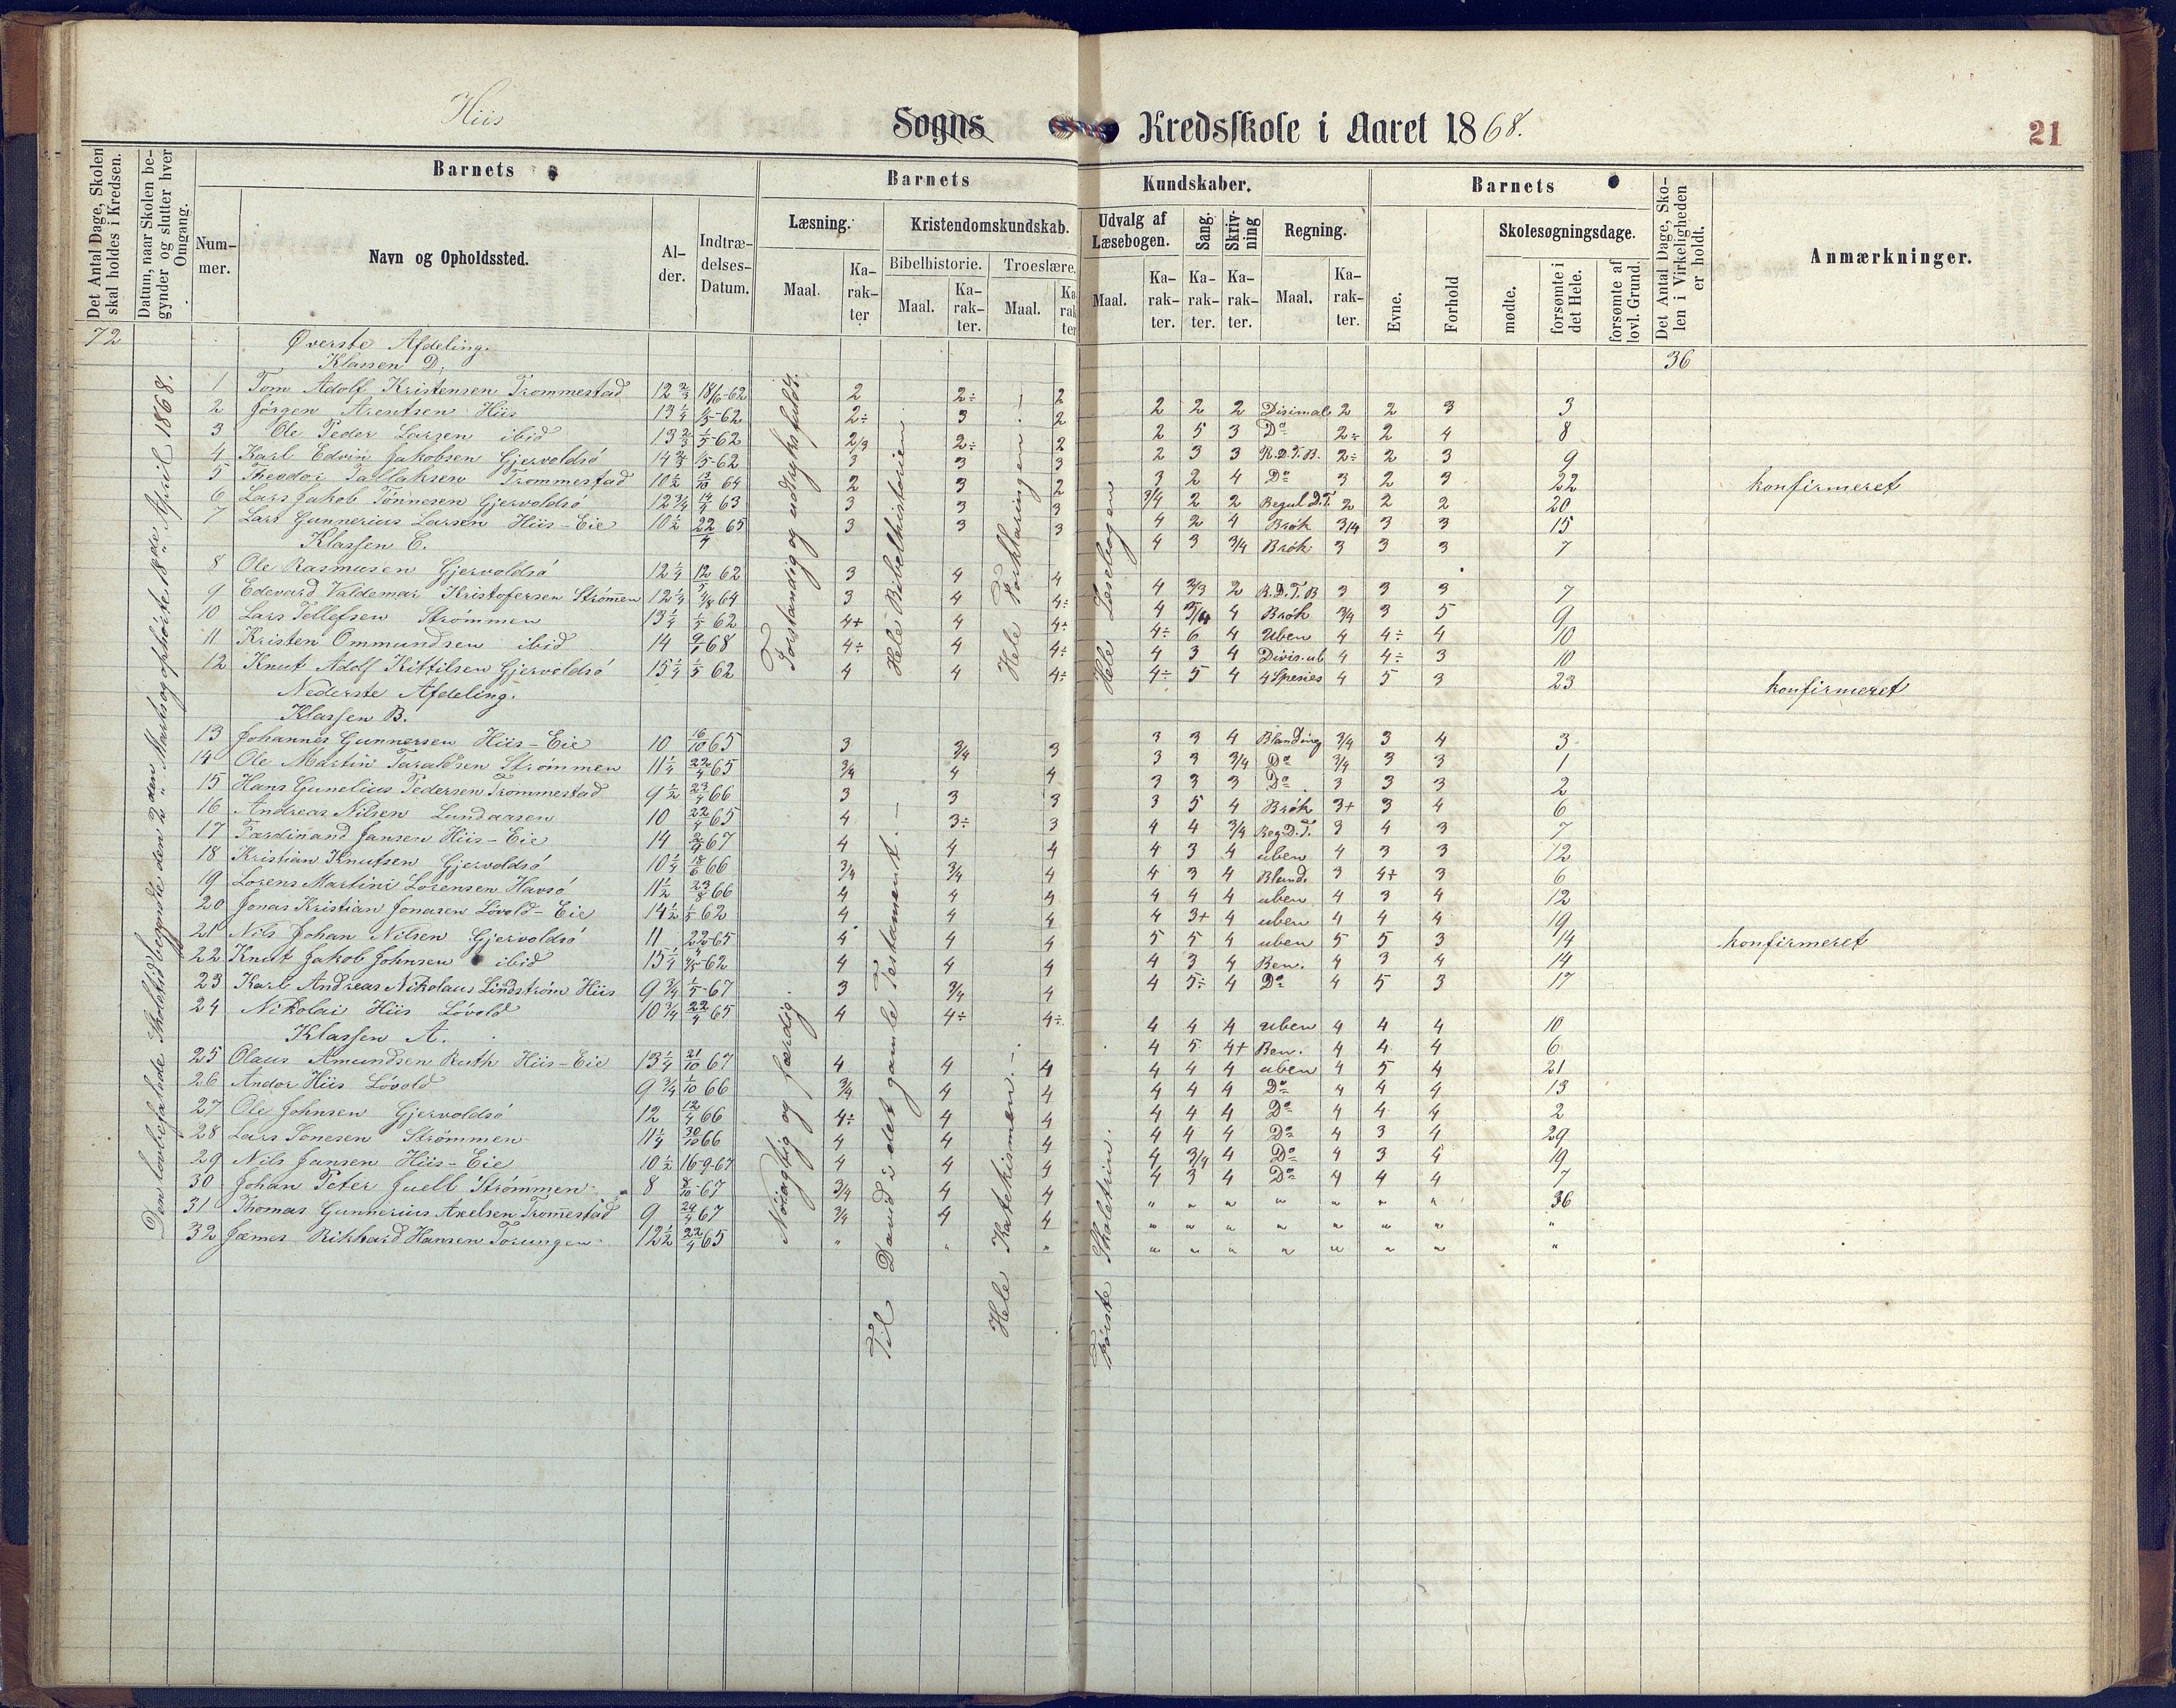 Hiis Sogns Kredsskole i Aaret 1868. 21
Det Antal Dage, Skolen skal holdes i Kredsen.
Datum, naar Skolen begynder og slutter hver Omgang.
Barnets
Nummer.
Navn og Opholdssted.
Alder.
Indtrædelses-Datum.
Barnets Kundskaber.
Læsning.
Maal.
Karakter
Kristendomskundskab.
Bibelhistorie.
Maal.
Karakter.
Troeslære.
Maal.
Karakter
Udvalg af Læsebogen.
Maal.
Karakter.
Sang.
Karakter.
Skrivning
Karakter.
Regning.
Maal.
Karakter.
Barnets
Evne.
Forhold
Skolesøgningsdage.
mødte.
forsømte i det Hele.
forsømte af lovl. Grund.
Det Antal Dage, Skolen i Virkeligheden er holdt.
Anmærkninger.
72
36
Den lovbefalede Skoletid begyndte den 2den Marts og ophørte 18de April 1868.
Forstandig og udtryksfuldt.
Hele Bibelhistorien
Hele Forklaringen.
Hele Læsebogen
Nøiagtig og færdig.
Til David i det gamle Testament.
Hele Katekismen.
Første Skoletrin.
Øverste Afdeling.
Klassen D.
1 Tom Adolf Kristensen Trommestad 12 2/3 18/6-62 2 2÷ 2 2 2 2 Disimale 2 2 3 3
2 Jørgen Arentsen Hiis 13 1/4 1/5-62 2÷ 3 2 2 5 3 Do 2÷ 2 4 8
3 Ole Peder Larsen ibid 13 2/3 1/5-62 2/3 2÷ 2 2 3 3 R.D.T.B. 2÷ 2 3 9
4 Karl Edvin Jakobsen Gjervoldsø 14 2/3 1/5-62 3 3 3 3 2 4 Do 3 2 3 22 konfirmeret
5 Theodor Tallaksen Trommestad 10 1/2 13/10 64 2 3 2 3/4 2 2 Regul D.T. 2 2 2 20
6 Lars Jakob Tønnesen Gjervoldsø 12 3/4 14/4 63 3 3 3 4 2 4 Brøk 3/4 3 3 15
7 Lars Gunnerius Larsen Hiis-Eie 10 1/2 22/4 65 3 3 3 4 3 3/4 Brøk 3 3 3 7
Klassen C.
8 Ole Rasmusen Gjervoldsø 12 1/4 12/5 62 3 4 4 4 2/3 2 R.D.T.B 3 3 3 7
9 Edevard Valdemar Kristofersen Strømmen 12 1/4 4/8 64 3 4 4÷ 4 3/4 4 Brøk 3/4 3 5 9
10 Lars Tellefsen Strømmen 13 1/4 1/5 62 4+ 4 4÷ 4÷ 6 4 Uben 4 4÷ 4 10
11 Kristen Ommundsen ibid 14 9/1 68 4÷ 4 4÷ 4 3 4 Divis. ub 4 4÷ 3 10
12 Knut Adolf Kittilsen Gjervoldsø 15 1/4 1/5 62 4 4 4÷ 4÷ 5 4 4 Spesies 4 5 3 23 konfirmeret
Nederste Afdeling.
Klassen B.
13 Johannes Gunnersen Hiis-Eie 10 16/10 65 3 3/4 3 3 3 4 Blanding 3/4 3 4 3
14 Ole Martin Taraldsen Strømmen 11 1/4 22/4 65 3/4 4 4 3 3 3/4 Do 3/4 3 3 1
15 Hans Gunelius Pedersen Trommestad 9 1/2 23/4 66 3 3 3 3 3 3 Do 3 3 3 2
16 Andreas Nilsen Lundaasen 10 22/4 65 4 3÷ 3 3 5 4 Brøk 3+ 3 4 6
17 Færdinand Jansen Hiis-Eie 14 2/9 67 4 4 4 4 4 3/4 Reg D.T. 3 4 3 7
18 Kristian Knutsen Gjervoldsø 10 1/4 18/6 66 3/4 3/4 4 4 3 4 uben 4 3 3 12
19 Lorens Martini Lorensen Havsø 11 1/2 23/8 66 4 4 4 4 3 4 Bland. 3 4+ 3 6
20 Jonas Kristian Jonasen Løvold-Eie 14 1/2 1/5 62 4 4 4 4 4 4 uben 4 3 4 12
21 Nils Johan Nilsen Gjervoldsø 11 22/4-65 4 4 4 4 3+ 4 uben 4 4 4 19
22 Knut Jakob Johnsen ibid 15 1/4 1/5-62 4 4 4 5 5 4 uben 5 5 3 14 konfirmeret
23 Karl Andreas Nikolaus Lindstrøm Hiis 9 3/4 1/5-67 3 3/4 4 4 3 4 Ben. 4 3 4 14
24 Nikolai Hiis Løvold 10 3/4 22/4 65 4 4÷ 4÷ 4 5÷ 4 Do 4 5 3 17
Klassen A.
25 Olaus Amundsen Ruth Hiis-Eie 13 1/4 21/10 67 4 4 4 4 4 4 uben 4 4 4 10
26 Andor Hiis Løvold 9 3/4 1/10 66 3/4 4 4 4 5 4+ Ben. 4 4 4 6
27 Ole Johnsen Gjervoldsø 12 12/4 66 4÷ 4 4 4 4 4 uben 4 5 4 21
28 Lars Tonesen Strømmen 11 1/4 30/10 66 4 4 4 4 4 4 Do 4 4 4 13
29 Nils Jansen Hiis-Eie 10 1/2 16-9-67 4 4 4 4 4 4 Do 4 4 4 2
30 Johan Peter Juell Strømmen 8 8/10-67 3/4 4 4 4 4 4 Do 4 3 4 29
31 Thomas Gunnerius Axelsen Trommestad 9 24/4 67 3/4 4 4 4 3/4 4 Do 4 3 4 19
32 James Rikhard Hansen Torungen 12 1/2 22/4 65 " " " 4 3 4 Do 4 4 4 7
" " " " " " " 36
" " " " " " " "
" " " " " " " "